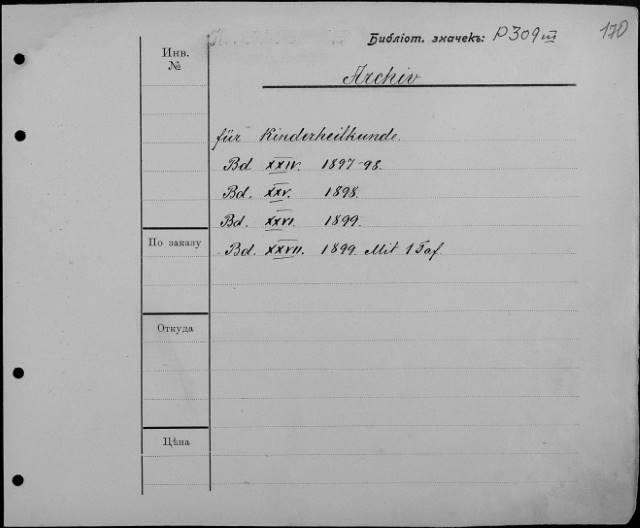 Библіот. значекъ: P309 III 170
Инв.
№
Archiv
für Kinderheilkunde.
Bd XXIV. 1897-98.
Bd. XXV. 1898.
Bd. XXVI. 1899.
По заказу
Bd. XXVII. 1899. Mit 1 Taf.
Откуда
Цѣна